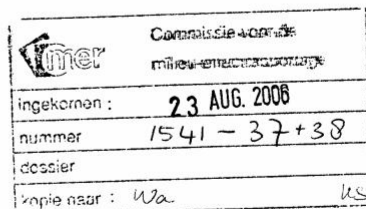 mer
Commissie voor de
milieu-effectrapportage
ingekomen : 23 AUG. 2006
nummer 1541 - 37 + 38
dossier
kopie naar : Wa